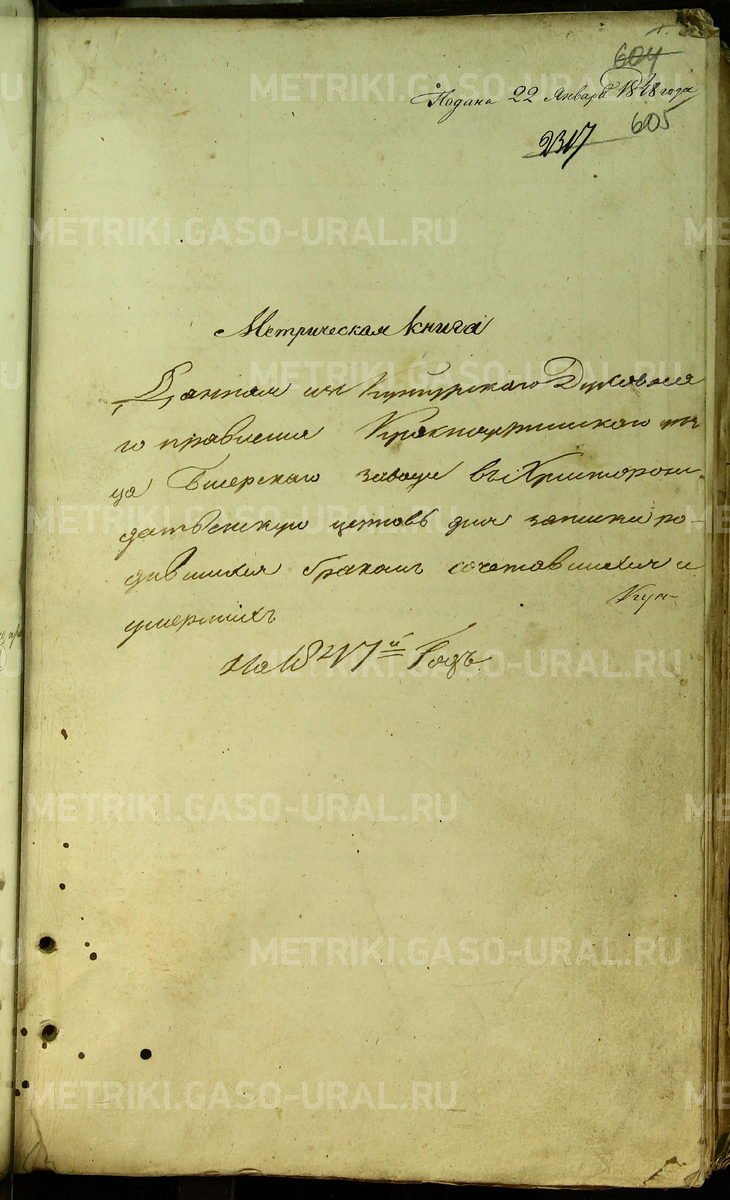 604
Подана 22 Января 1848 года
605
2317
Метрическая книга
Данная изъ Кунгурскаго Духовна
го правления Красноуфимского уѣз
да Бисерскаго завода въ Христорож
дественскую церковь для записки ро-
дившихся бракомъ сочетавшихся и
умершихъ
Кун-
На 1847й Годъ
METRIKI.GASO-URAL.RU